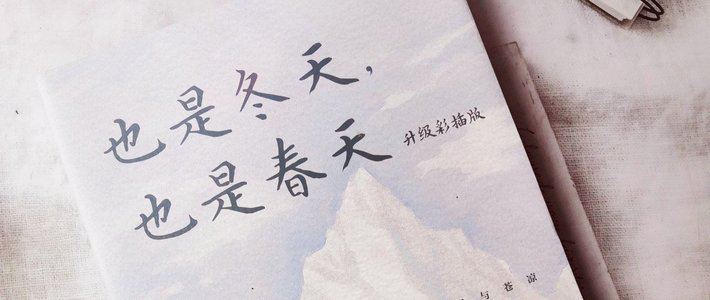 也是冬天,
也是春天
升级彩插版
与苍凉